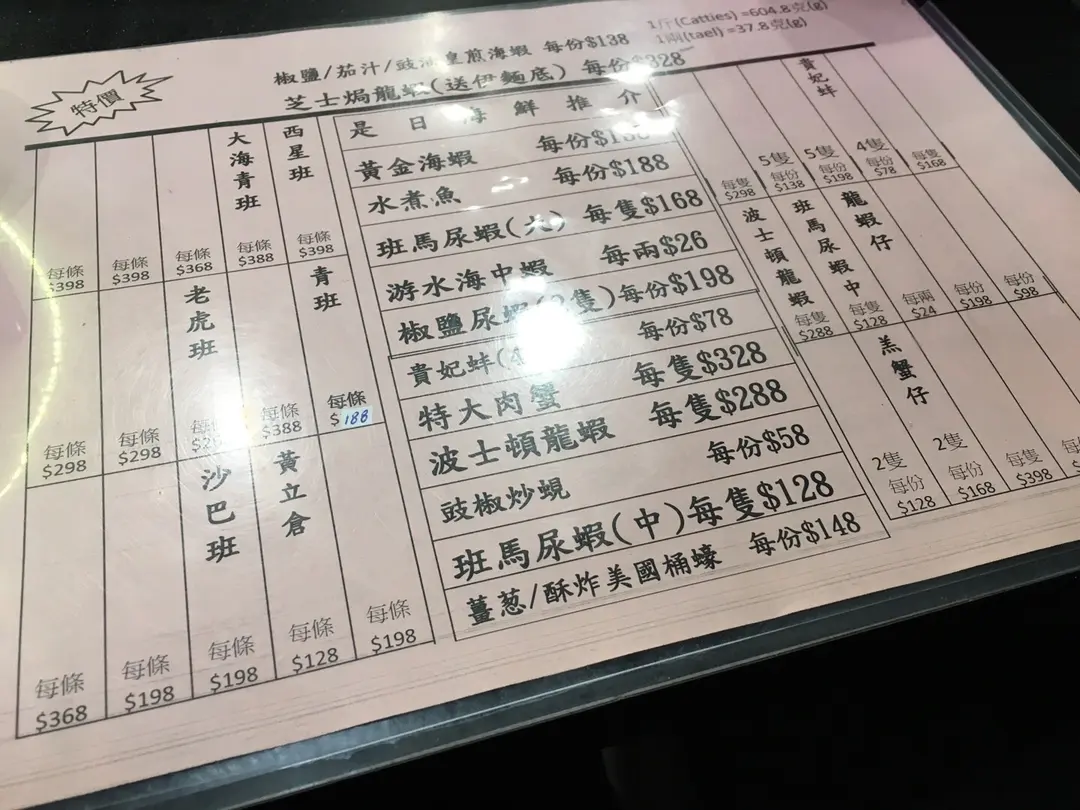 1斤(Catties) =604.8克(g)
1兩(tael) =37.8克(g)
特價
椒鹽/茄汁/豉油皇煎海蝦 每份$138
芝士焗龍蝦(送伊麵底) 每份$328
是日海鮮推介
黃金海蝦 每份
水煮魚 每份$188
班馬尿蝦(大) 每隻$168
游水海中蝦 每兩$26
椒鹽尿蝦(2隻) 每份$198
貴妃蚌 每份$78
特大肉蟹 每隻$328
波士頓龍蝦 每隻$288
豉椒炒蜆 每份$58
班馬尿蝦(中) 每隻$128
薑葱/酥炸美國桶蠔 每份$148
每條 $398
每條 $398
每條 $368
大海青班 每條 $388
西星班 每條 $398
每條 $298
每條 $298
老虎班
每條 $388
青班 每條 $188
每條 $368
每條 $198
沙巴班 每條 $198
黃立倉 每條 $128
每條 $198
每隻 $298
5隻 每份 $138
5隻 每份 $198
貴妃蚌 4隻 每份 $78
每隻 $168
波士頓龍蝦 每隻 $288
班馬尿蝦中 每隻 $128
龍蝦仔 每兩 $24
每份 $198
每份 $98
2隻 每份 $128
羔蟹仔 2隻 每份 $168
每隻 $398